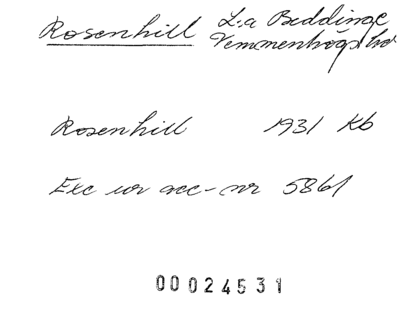 Rosenhill L:a Beddinge
Vemmenhögs hd
Rosenhill 1931 Kb
Exc ur acc-nr 5861
00024531